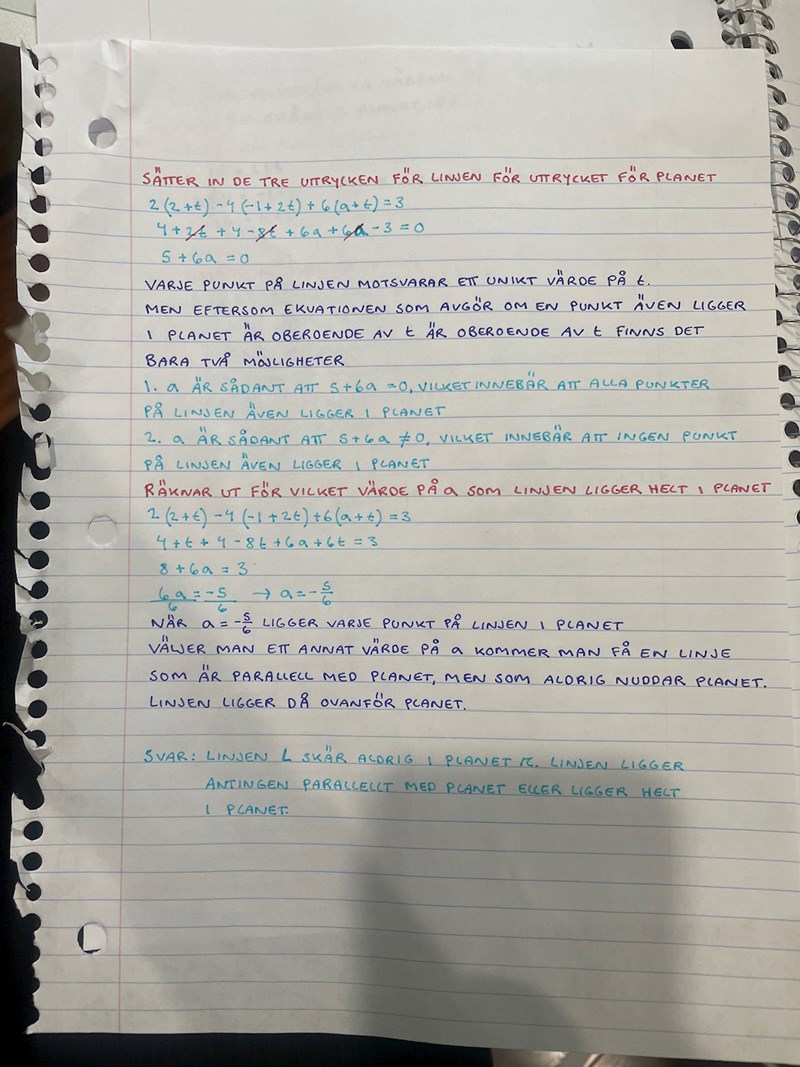 SÄTTER IN DE TRE UTTRYCKEN FÖR LINJEN FÖR UTTRYCKET FÖR PLANET
2(2+t)-4(-1+2t)+6(a+t)=3
4+2t+4-8t+6a+6a-3=0
5+6a=0
VARJE PUNKT PÅ LINJEN MOTSVARAR ETT UNIKT VÄRDE PÅ t.
MEN EFTERSOM EKVATIONEN SOM AVGÖR OM EN PUNKT ÄVEN LIGGER
I PLANET ÄR OBEROENDE AV t ÄR OBEROENDE AV t FINNS DET
BARA TVÅ MÖJLIGHETER
1. a ÄR SÅDANT ATT 5+6a=0, VILKET INNEBÄR ATT ALLA PUNKTER
PÅ LINJEN ÄVEN LIGGER I PLANET
2. a ÄR SÅDANT ATT 5+6a≠0, VILKET INNEBÄR ATT INGEN PUNKT
PÅ LINJEN ÄVEN LIGGER I PLANET
RÄKNAR UT FÖR VILKET VÄRDE PÅ a SOM LINJEN LIGGER HELT I PLANET
2(2+t)-4(-1+2t)+6(a+t)=3
4+t+4-8t+6a+6t=3
8+6a=3
6a/6=-5/6 → a=-5/6
NÄR a=-5/6 LIGGER VARJE PUNKT PÅ LINJEN I PLANET
VÄLJER MAN ETT ANNAT VÄRDE PÅ a KOMMER MAN FÅ EN LINJE
SOM ÄR PARALLELL MED PLANET, MEN SOM ALDRIG NUDDAR PLANET.
LINJEN LIGGER DÅ OVANFÖR PLANET.
SVAR: LINJEN L SKÄR ALDRIG I PLANET π. LINJEN LIGGER
ANTINGEN PARALLELLT MED PLANET ELLER LIGGER HELT
I PLANET.